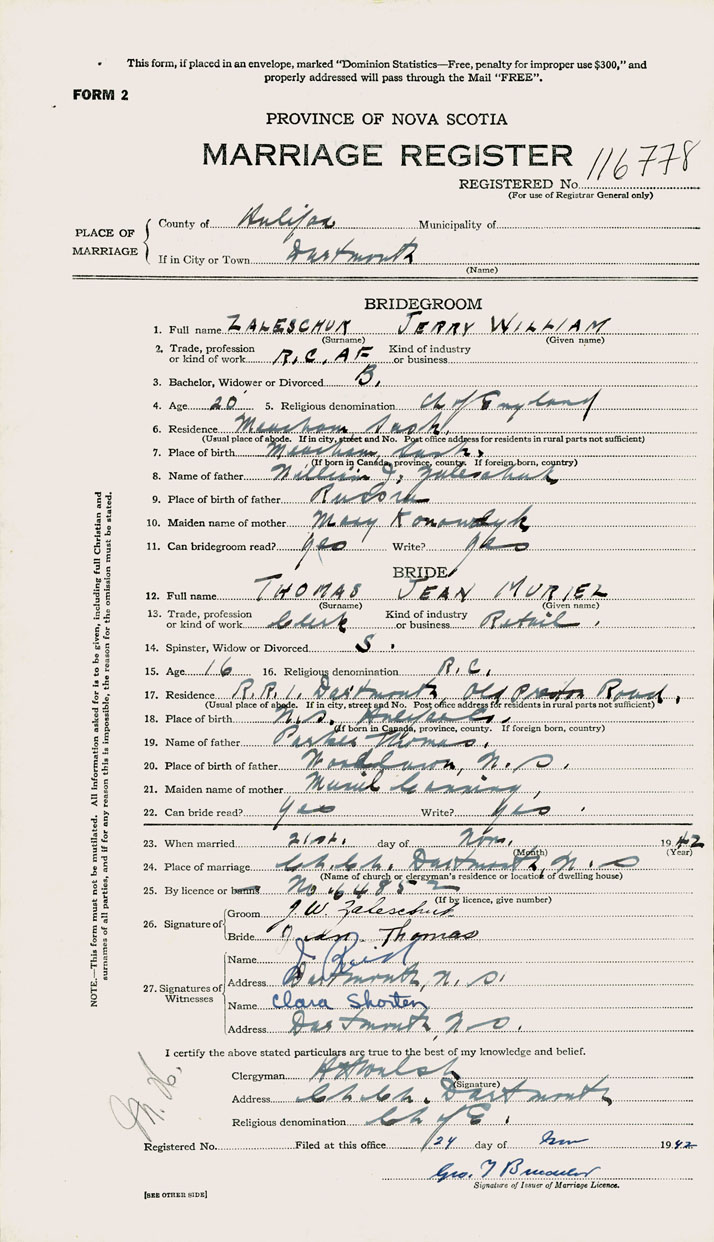 This form, if placed in an envelope, marked "Dominion Statistics—Free, penalty for improper use $300," and
properly addressed will pass through the Mail "FREE".
FORM 2
PROVINCE OF NOVA SCOTIA
MARRIAGE REGISTER
116778
REGISTERED No.
(For use of Registrar General only)
PLACE OF MARRIAGE
County of Halifax Municipality of
If in City or Town Dartmouth
(Name)
BRIDEGROOM
1. Full name ZALESCHUK JERRY WILLIAM
(Surname) (Given name)
2. Trade, profession or kind of work R.C.AF Kind of industry or business
3. Bachelor, Widower or Divorced B.
4. Age 20 5. Religious denomination Ch of England
6. Residence Meacham Sask.
(Usual place of abode. If in city, street and No. Post office address for residents in rural parts not sufficient)
7. Place of birth Meacham, Sask.
(If born in Canada, province, county. If foreign born, country)
8. Name of father William J. Zaleschuk
9. Place of birth of father Russia
10. Maiden name of mother Mary
11. Can bridegroom read? yes Write? yes
BRIDE
12. Full name THOMAS JEAN MURIEL
(Surname) (Given name)
13. Trade, profession or kind of work Clerk Kind of industry or business Retail.
14. Spinster, Widow or Divorced S.
15. Age 16 16. Religious denomination R.C.
17. Residence R.R.1. Dartmouth Old Preston Road,
(Usual place of abode. If in city, street and No. Post office address for residents in rural parts not sufficient)
18. Place of birth N.S. Halifax Co.
(If born in Canada, province, county. If foreign born, country)
19. Name of father Parker Thomas.
20. Place of birth of father N.S.
21. Maiden name of mother Muriel
22. Can bride read? yes Write? yes.
23. When married 21st. day of Nov. 1942
(Month) (Year)
24. Place of marriage Ch. Ch. Dartmouth, N.S
(Name of church or clergyman's residence or location of dwelling house)
25. By licence or banns No 64852
(If by licence, give number)
26. Signature of
Groom J.W. Zaleschuk
Bride Jean Thomas
27. Signatures of Witnesses
Name J. Reid
Address Dartmouth, N.S.
Name Clara Shorten
Address Dartmouth, N.S.
I certify the above stated particulars are true to the best of my knowledge and belief.
Clergyman Walsh
(Signature)
Address Ch. Ch. Dartmouth
Religious denomination Ch of E.
Registered No. Filed at this office 24 day of Nov 1942
Geo.
Signature of Issuer of Marriage Licence.
[SEE OTHER SIDE]
NOTE.—This form must not be mutilated. All information asked for is to be given, including full Christian and
surnames of all parties, and if for any reason this is impossible, the reason for the omission must be stated.